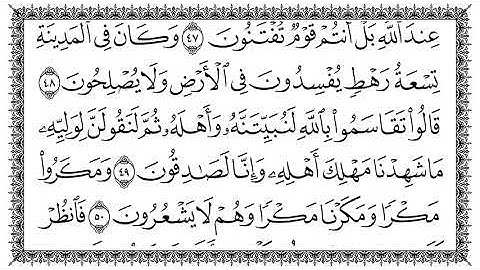 عِندَ ٱللَّهِ بَلْ أَنتُمْ قَوْمٌ تُفْتَنُونَ ٤٧ وَكَانَ فِى ٱلْمَدِينَةِ
تِسْعَةُ رَهْطٍ يُفْسِدُونَ فِى ٱلْأَرْضِ وَلَا يُصْلِحُونَ ٤٨
قَالُوا۟ تَقَاسَمُوا۟ بِٱللَّهِ لَنُبَيِّتَنَّهُۥ وَأَهْلَهُۥ ثُمَّ لَنَقُولَنَّ لِوَلِيِّهِۦ
مَا شَهِدْنَا مَهْلِكَ أَهْلِهِۦ وَإِنَّا لَصَـٰدِقُونَ ٤٩ وَمَكَرُوا۟
مَكْرًا وَمَكَرْنَا مَكْرًا وَهُمْ لَا يَشْعُرُونَ ٥٠ فَٱنظُرْ